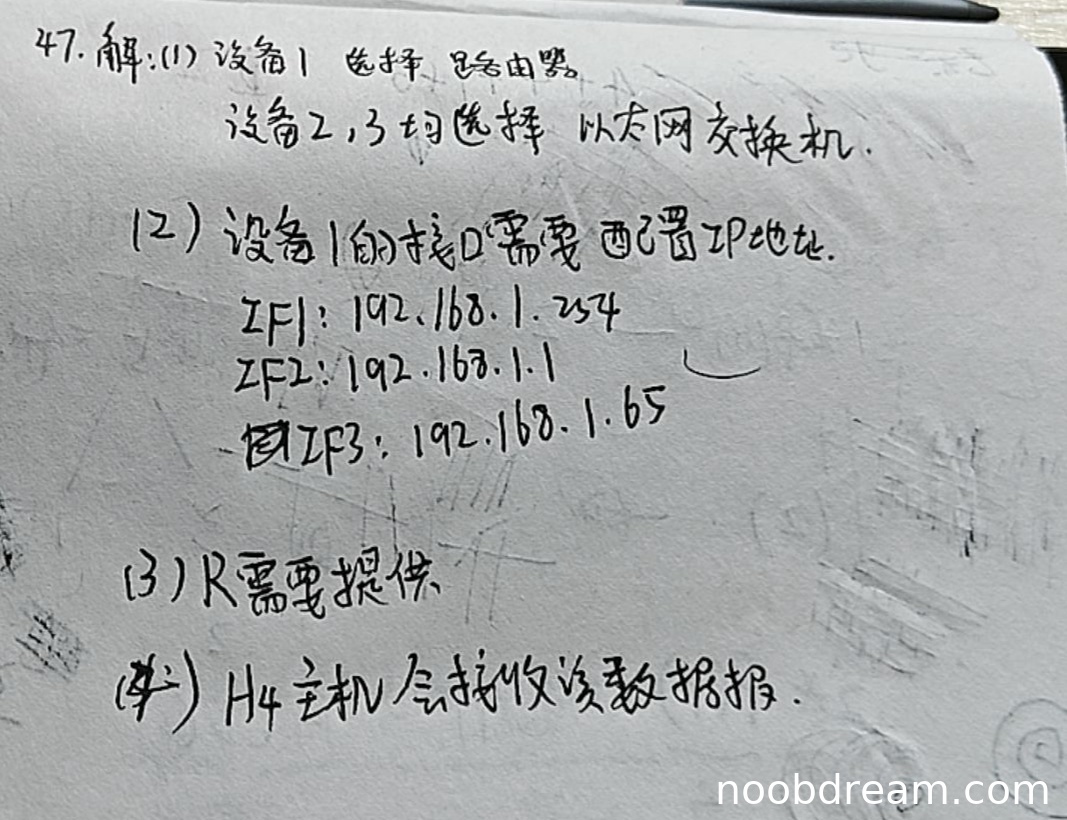 47. 解:(1) 设备1 选择 路由器。
设备2,3均选择 以太网交换机.
(2) 设备1的接口需要配置IP地址.
IF1: 192.168.1.254
IF2: 192.168.1.1
IF3: 192.168.1.65
(3) R需要提供
(4) H4主机会接收该数据报.
noobdream.com